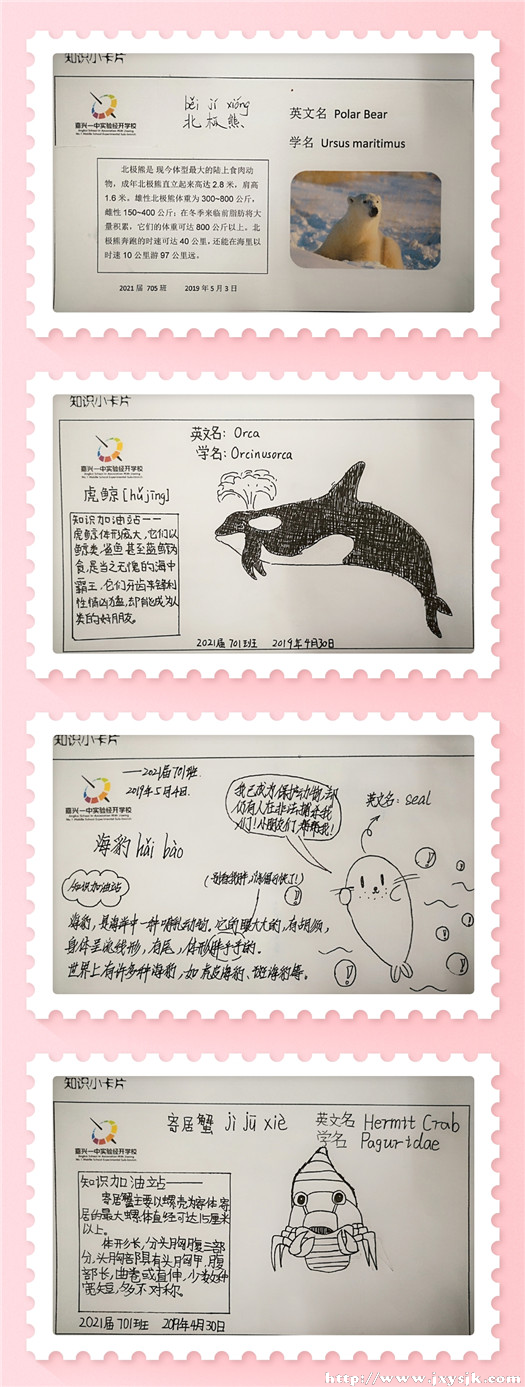 知识小卡片
嘉兴一中实验经开学校
běi jí xióng
北极熊
英文名 Polar Bear
学名 Ursus maritimus
北极熊是现今体型最大的陆上食肉动
物，成年北极熊直立起来高达 2.8 米，肩高
1.6 米。雄性北极熊体重为 300~800 公斤，
雌性 150~400 公斤；在冬季来临前脂肪将大
量积累，它们的体重可达 800 公斤以上。北
极熊奔跑的时速可达 40 公里，还能在海里以
时速 10 公里游 97 公里远。
2021 届 705 班 2019 年 5 月 3 日
知识小卡片
嘉兴一中实验经开学校
英文名: Orca
学名: Orcinusorca
虎鲸 [hǔ jīng]
知识加油站——
虎鲸体形庞大，它们以
鲸类，鲨鱼甚至蓝鲸为
食，是当之无愧的海中
霸王，它们牙齿锋利
性情凶猛，却能成为人
类的好朋友。
2021届 701班 2019年4月30日
知识小卡片
——2021届701班.
2019年5月4日.
嘉兴一中实验经开学校
海豹 hǎi bào
我已成为保护动物，却
仍有人在非法捕杀我
们！小朋友们，帮帮我！
英文名: seal
知识加油站
海豹，是海洋中一种哺乳动物。它的眼大大的，有胡须，
身体呈流线形，有尾，体形胖乎乎的。
世界上有许多种海豹，如虎皮海豹、斑海豹等。
知识小卡片
嘉兴一中实验经开学校
寄居蟹 jì jū xiè
英文名 Hermit Crab
学名 Paguridae
知识加油站——
寄居蟹主要以螺壳为寄体，寄
居的最大螺体直径可达15厘米
以上。
体形长，分头胸腹三部
分，头胸部具有头胸甲，腹
部长，曲卷或直伸，少数种
宽短，多不对称。
2021届 701班 2019年4月30日
http://www.jxysjk.com